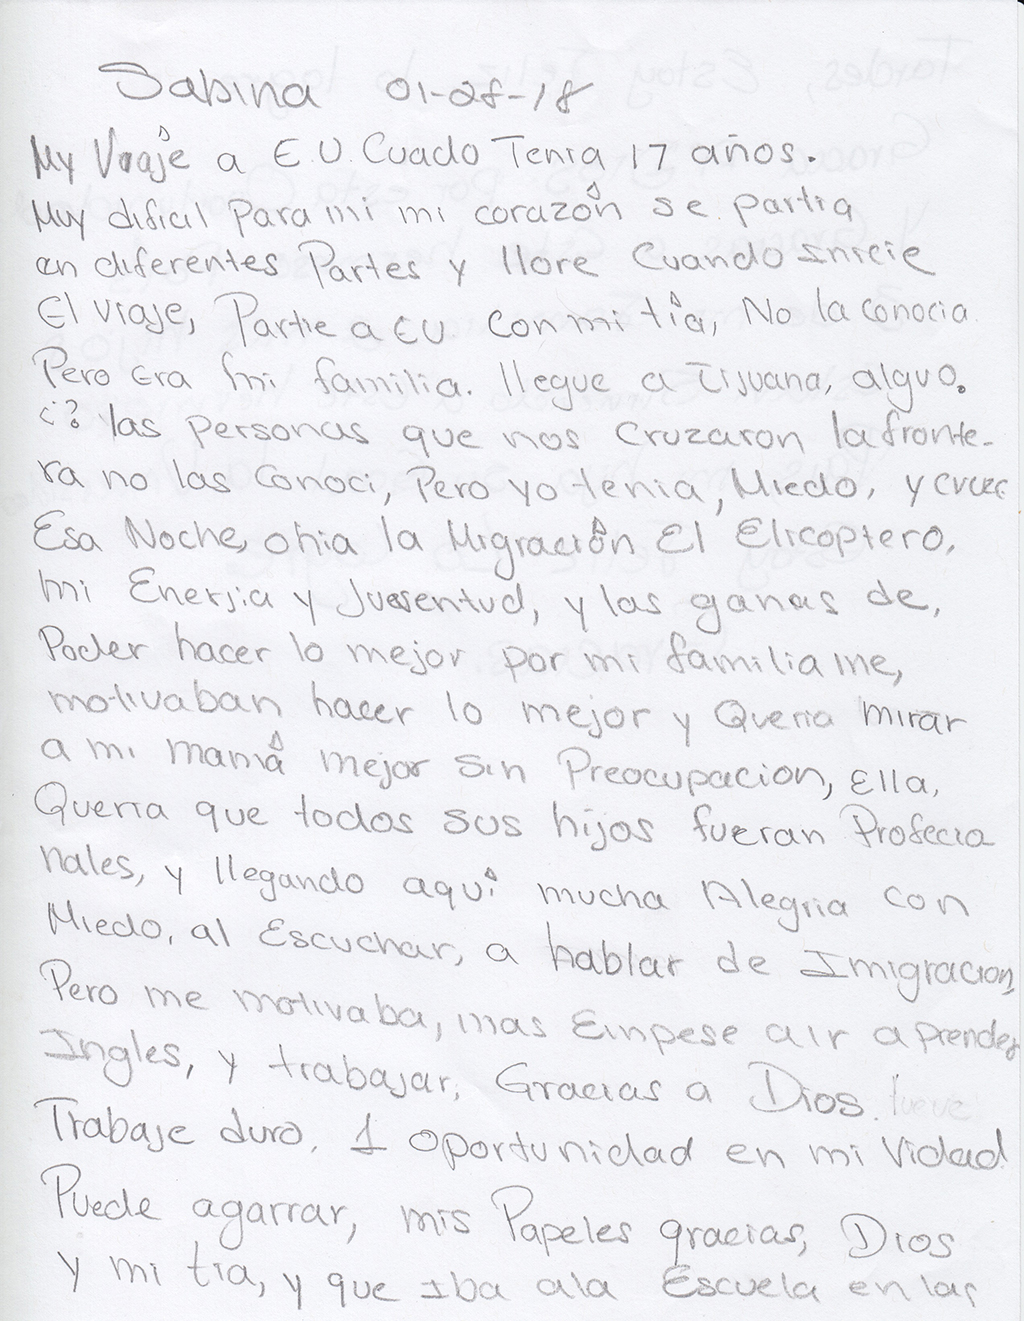 Sabina 01-28-18
My Viaje a E.U. Cuado Tenia 17 años.
Muy dificil Para mi mi corazón se partia
en diferentes Partes y llore Cuando Inicie
El viaje, Partie a E.U. Con mi tía, No la conocia.
Pero Era mi familia. llegue a Tijuana, alguo.
¿? las personas que nos cruzaron la fronte-
ra no las Conoci, Pero yo tenia, Miedo, y cruce
Esa Noche, ohia la Migración El Elicoptero,
mi Enerjia y Juventud, y las ganas de,
Poder hacer lo mejor por mi familia me,
motivaban hacer lo mejor y Queria mirar
a mi mamá mejor sin Preocupacion, Ella,
Queria que todos sus hijos fueran Profecio
nales, y llegando aquí mucha Alegria con
Miedo, al Escuchar, a hablar de Imigracion,
Pero me motivaba, mas Empese air aprender
Ingles, y trabajar, Gracias a Dios.
Trabaje duro, 1 oportunidad en mi Vidad
Puede agarrar, mis Papeles gracias, Dios
y mi tia, y que Iba ala Escuela en las